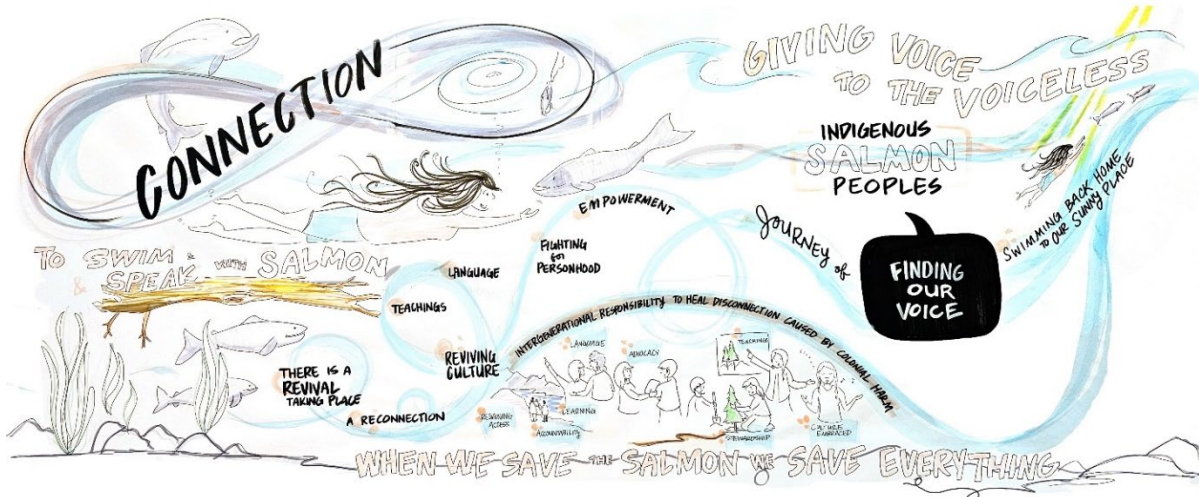 CONNECTION
GIVING VOICE
TO THE VOICELESS
INDIGENOUS
SALMON
PEOPLES
TO SWIM &
& SPEAK WITH SALMON
LANGUAGE
TEACHINGS
REVIVING
CULTURE
THERE IS A
REVIVAL
TAKING PLACE
A RECONNECTION
EMPOWERMENT
FIGHTING
for
PERSONHOOD
JOURNEY of
FINDING
OUR
VOICE
SWIMMING BACK HOME
TO OUR SUNNY PLACE
INTERGENERATIONAL RESPONSIBILITY TO HEAL DISCONNECTION CAUSED BY COLONIAL HARM
LANGUAGE
ADVOCACY
TEACHINGS
REGAINING
ACCESS
LEARNING
ACCOUNTABILITY
STEWARDSHIP
CULTURE
EMBRACED
WHEN WE SAVE THE SALMON WE SAVE EVERYTHING